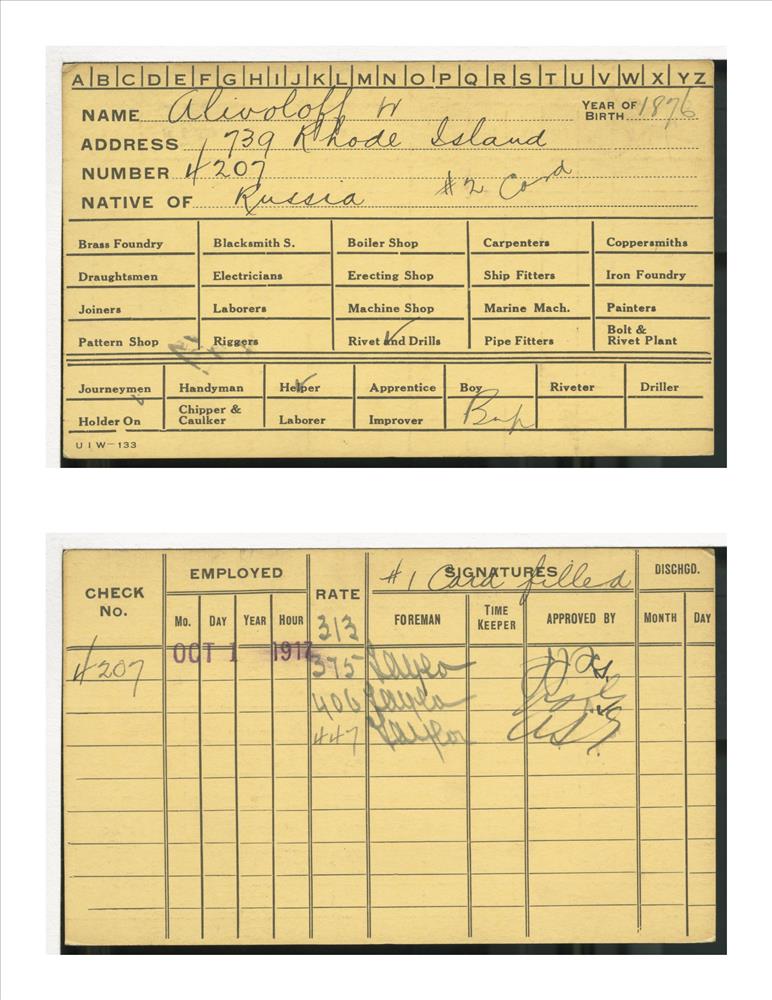 A B C D E F G H I J K L M N O P Q R S T U V W X Y Z
NAME Alivoloff W YEAR OF BIRTH 1876
ADDRESS 739 Rhode Island
NUMBER 4207
NATIVE OF Russia #2 Card
Brass Foundry Blacksmith S. Boiler Shop Carpenters Coppersmiths
Draughtsmen Electricians Erecting Shop Ship Fitters Iron Foundry
Joiners Laborers Machine Shop Marine Mach. Painters
Pattern Shop Riggers Rivet and Drills Pipe Fitters Bolt & Rivet Plant
Journeymen Handyman Helper Apprentice Boy Riveter Driller
Holder On Chipper & Caulker Laborer Improver
U I W-133
CHECK No. EMPLOYED RATE SIGNATURES DISCHGD.
#1 Card filled
Mo. DAY YEAR HOUR FOREMAN TIME KEEPER APPROVED BY MONTH DAY
313
4207 OCT 1 1917 375 Taylor
406 Taylor
447 Taylor